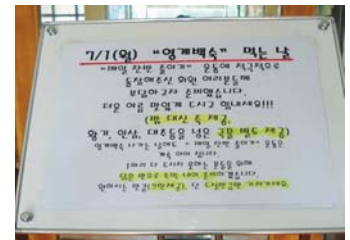 7/1(월) "영계백숙" 먹는 날
"매일 잔반 줄이기" 운동에 적극적으로
동참해주신 회원 여러분들께
보답하고자 준비했습니다.
더운 여름 맛있게 드시고 힘내세요!!!
(밥 대신 죽 제공,
황기, 인삼, 대추등을 넣은 국물 별도 제공)
영계백숙 나가는 날에도 "매일 잔반 줄이기" 운동은
계속 이어 집니다.
다 드시지 못하는 분들을 위해